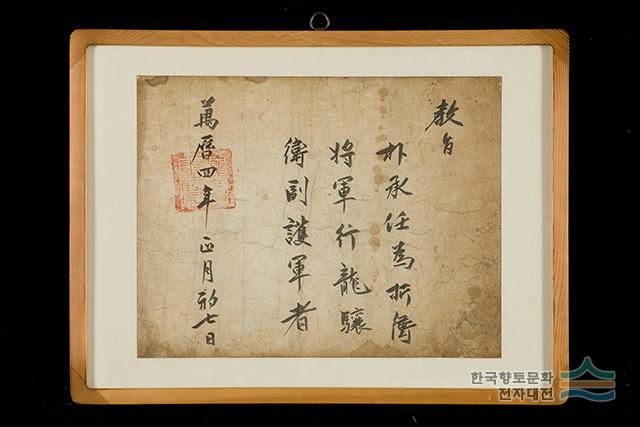 教旨
朴承任為折衝
將軍行龍驤
衛副護軍者
萬曆四年正月初七日
한국향토문화
전자대전